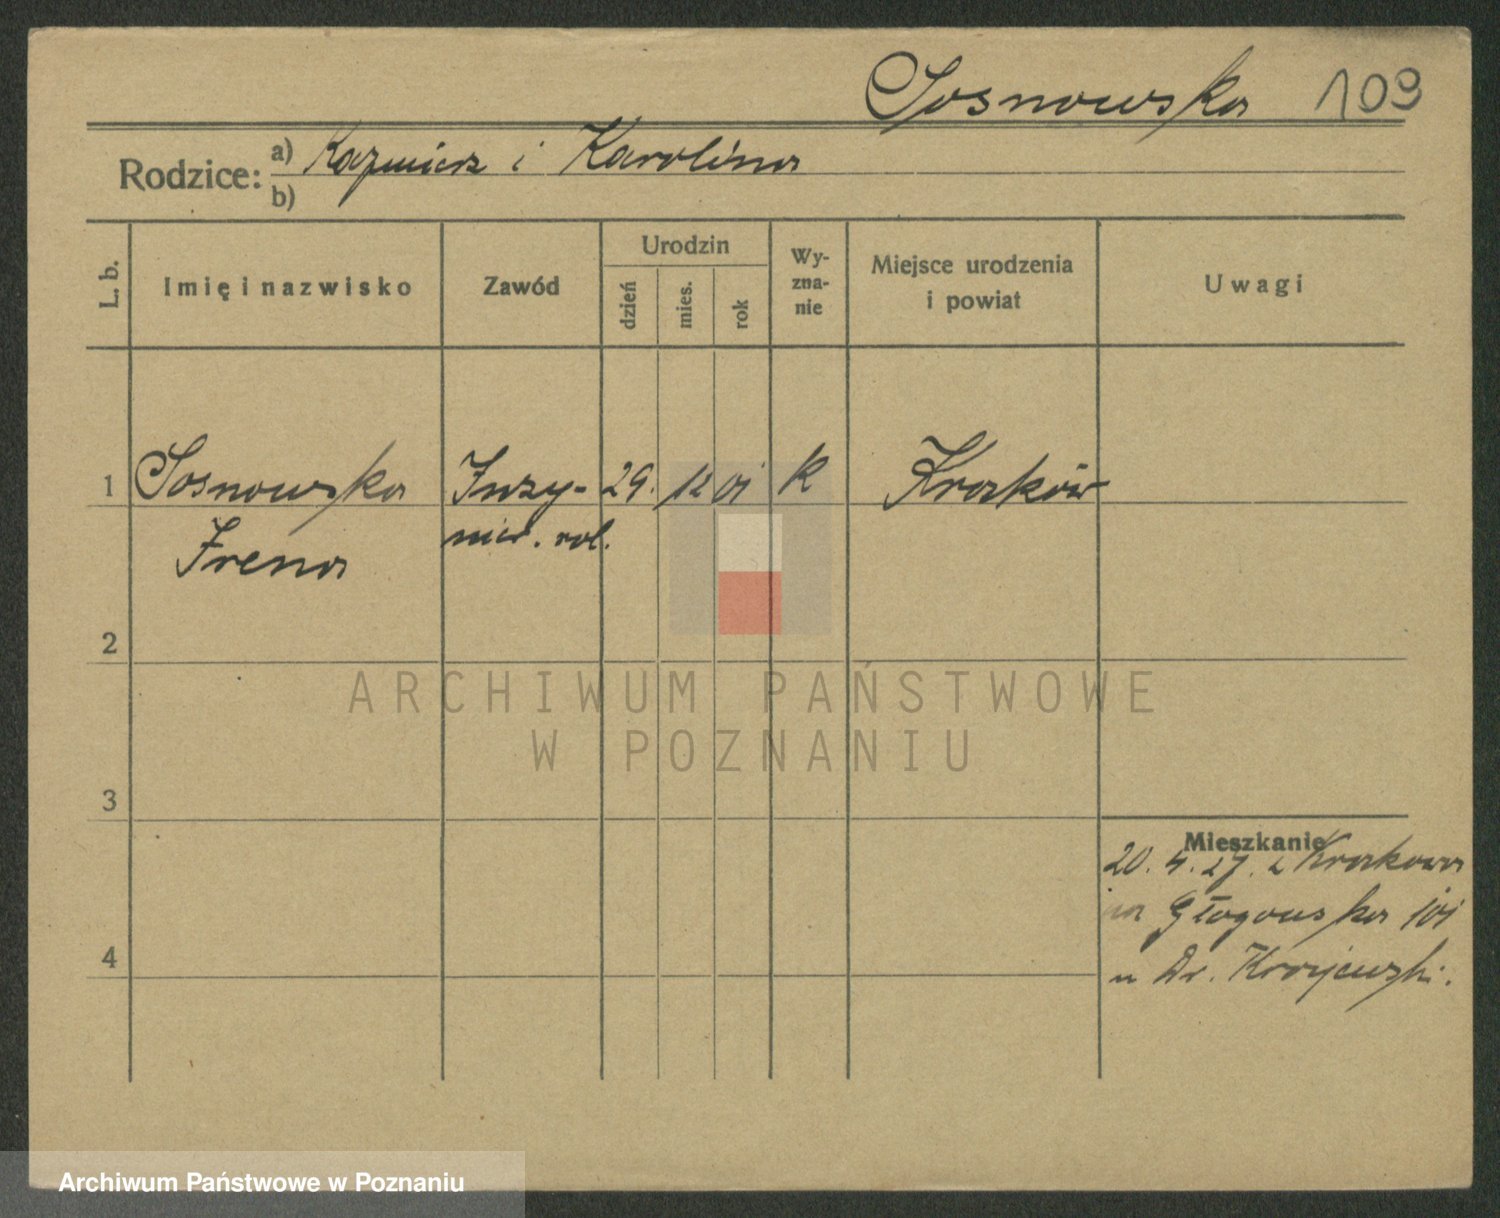 Sosnowska 109
Rodzice: a) Kazmierz i Karolina
b)
L. b.
Imię i nazwisko
Zawód
Urodzin
dzień
mies.
rok
Wy-
zna-
nie
Miejsce urodzenia
i powiat
Uwagi
1 Sosnowska Inży- 29. 12 01 K Kraków
Irena nier. rol.
2
ARCHIWUM PAŃSTWOWE
W POZNANIU
3
Mieszkanie
20. 4. 27. z Krakowa
na Głogowska 101
4
u Dr. Krajewski.
Archiwum Państwowe w Poznaniu